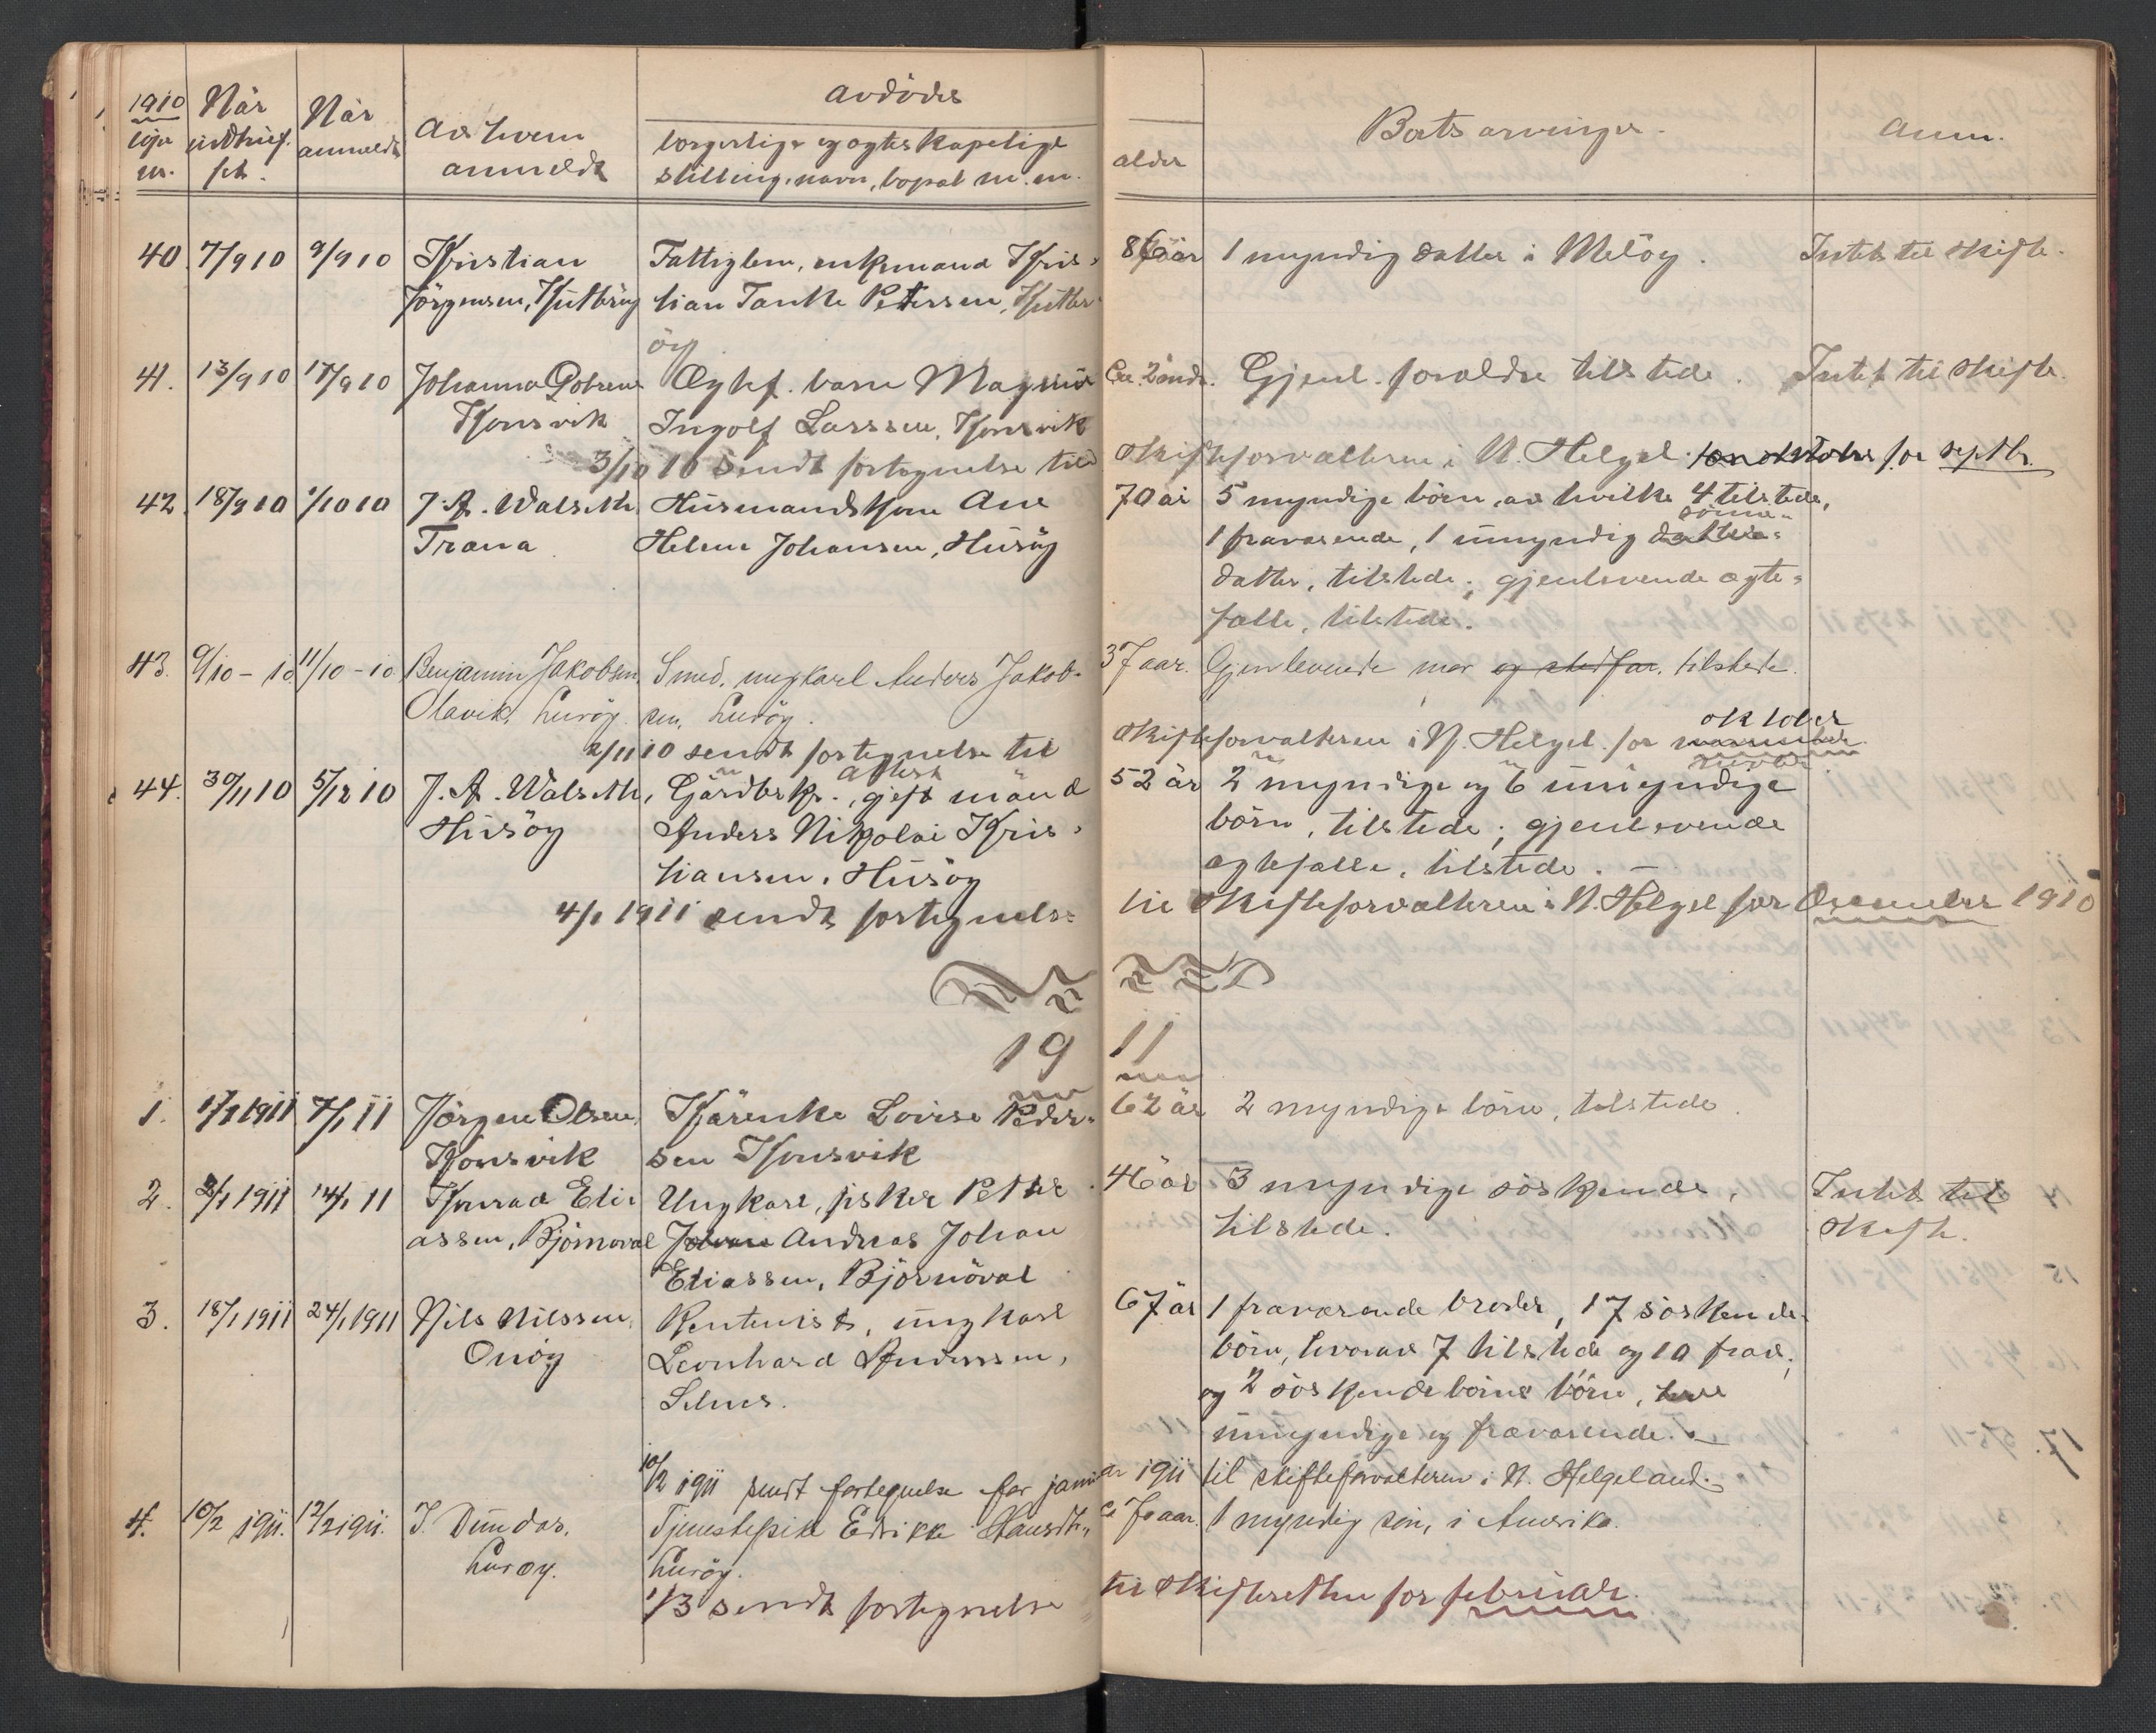 1910
løpe nr.
Når indtruf. fet.
Når anmeldt
Av hvem anmeldt
Avdødes
borgerlige og ægteskapelige
stilling, navn, bopæl m.m.
alder
Boets arvinger.
Anm.
40. 7/9 10 9/9 10 Kristian Fattiglem, enkemand Kris- 86 år 1 myndig datter i Meløy. Intet til skifte.
Jørgensen, tian Tanke Petersen,
øy
41. 13/9 10 17/9 10 Johanna Ægtef. barn Magnus Ca. 2 mdr. Gjenl. forældre tilstede. Intet til skifte.
Konsvik Ingolf Larssen, Konsvik
3/10 10 sendt fortegnelse til Skifteforvalteren i N. Helgel. for septbr.
42. 18/9 10 1/10 10 J. A. Walsöth, Husmandskone Ane 70 år 5 myndige børn, av hvilke 4 tilstede,
Træna Helene Johansen, Husøy 1 fraværende, 1 umyndig datter- sønne-
datter, tilstede; gjenlevende ægte-
fælle, tilstede.
43. 9/10 - 10 11/10 - 10 Benjamin Jakobsen Smed, ungkarl Anders Jakob- 37 aar. Gjenlevende mor og stedfar, tilstede.
Olavik, Lurøy. sen, Lurøy.
2/11 10 sendt fortegnelse til Skifteforvalteren i N. Helgel. for oktober
44. 30/11 10 5/12 10 J. A. Walsöth, Gårdbrkr., gift mand 52 år 2 myndige og 6 umyndige
Husøy Anders Nikolai Kris- børn, tilstede; gjenlevende
tiansen, Husøy ægtefælle, tilstede. —
4/1 1911 sendt fortegnels- til Skifteforvalteren i N. Helgel for December 1910
1911
1. 1/1 1911 7/1 11 Jørgen Olsen, Kårenke Lovise Peder- 62 år 2 myndige børn, tilstede.
Konsvik sen Konsvik
2. 2/1 1911 14/1 11 Konrad Eli- Ungkarl, fisker Peter 46 år 3 myndige søskende, Intet til
assen, Bjørnøval Johan Andreas Johan tilstede. Skifte.
Eliassen, Bjørnøval
3. 18/1 1911 24/1 1911 Nils Nilssen, Rentenist, ungkarl 67 år 1 fraværende broder, 17 søskende-
Onøy Leonhard Anderssen, børn, hvorav 7 tilstede og 10 frav.,
Selnes. og 2 søskendebørns børn,
umyndige og fraværende. —
10/2 1911 sendt fortegnelse for januar 1911 til skifteforvalteren i N. Helgeland.
4. 10/2 1911. 12/2 1911. I. Dundas, Tjenestepike Edrikke Hansdtr. ca 70 aar. 1 myndig søn, i Amerika.
Lurøy. Lurøy.
1/3 sendt fortegnelse til Skifteretten for februar.